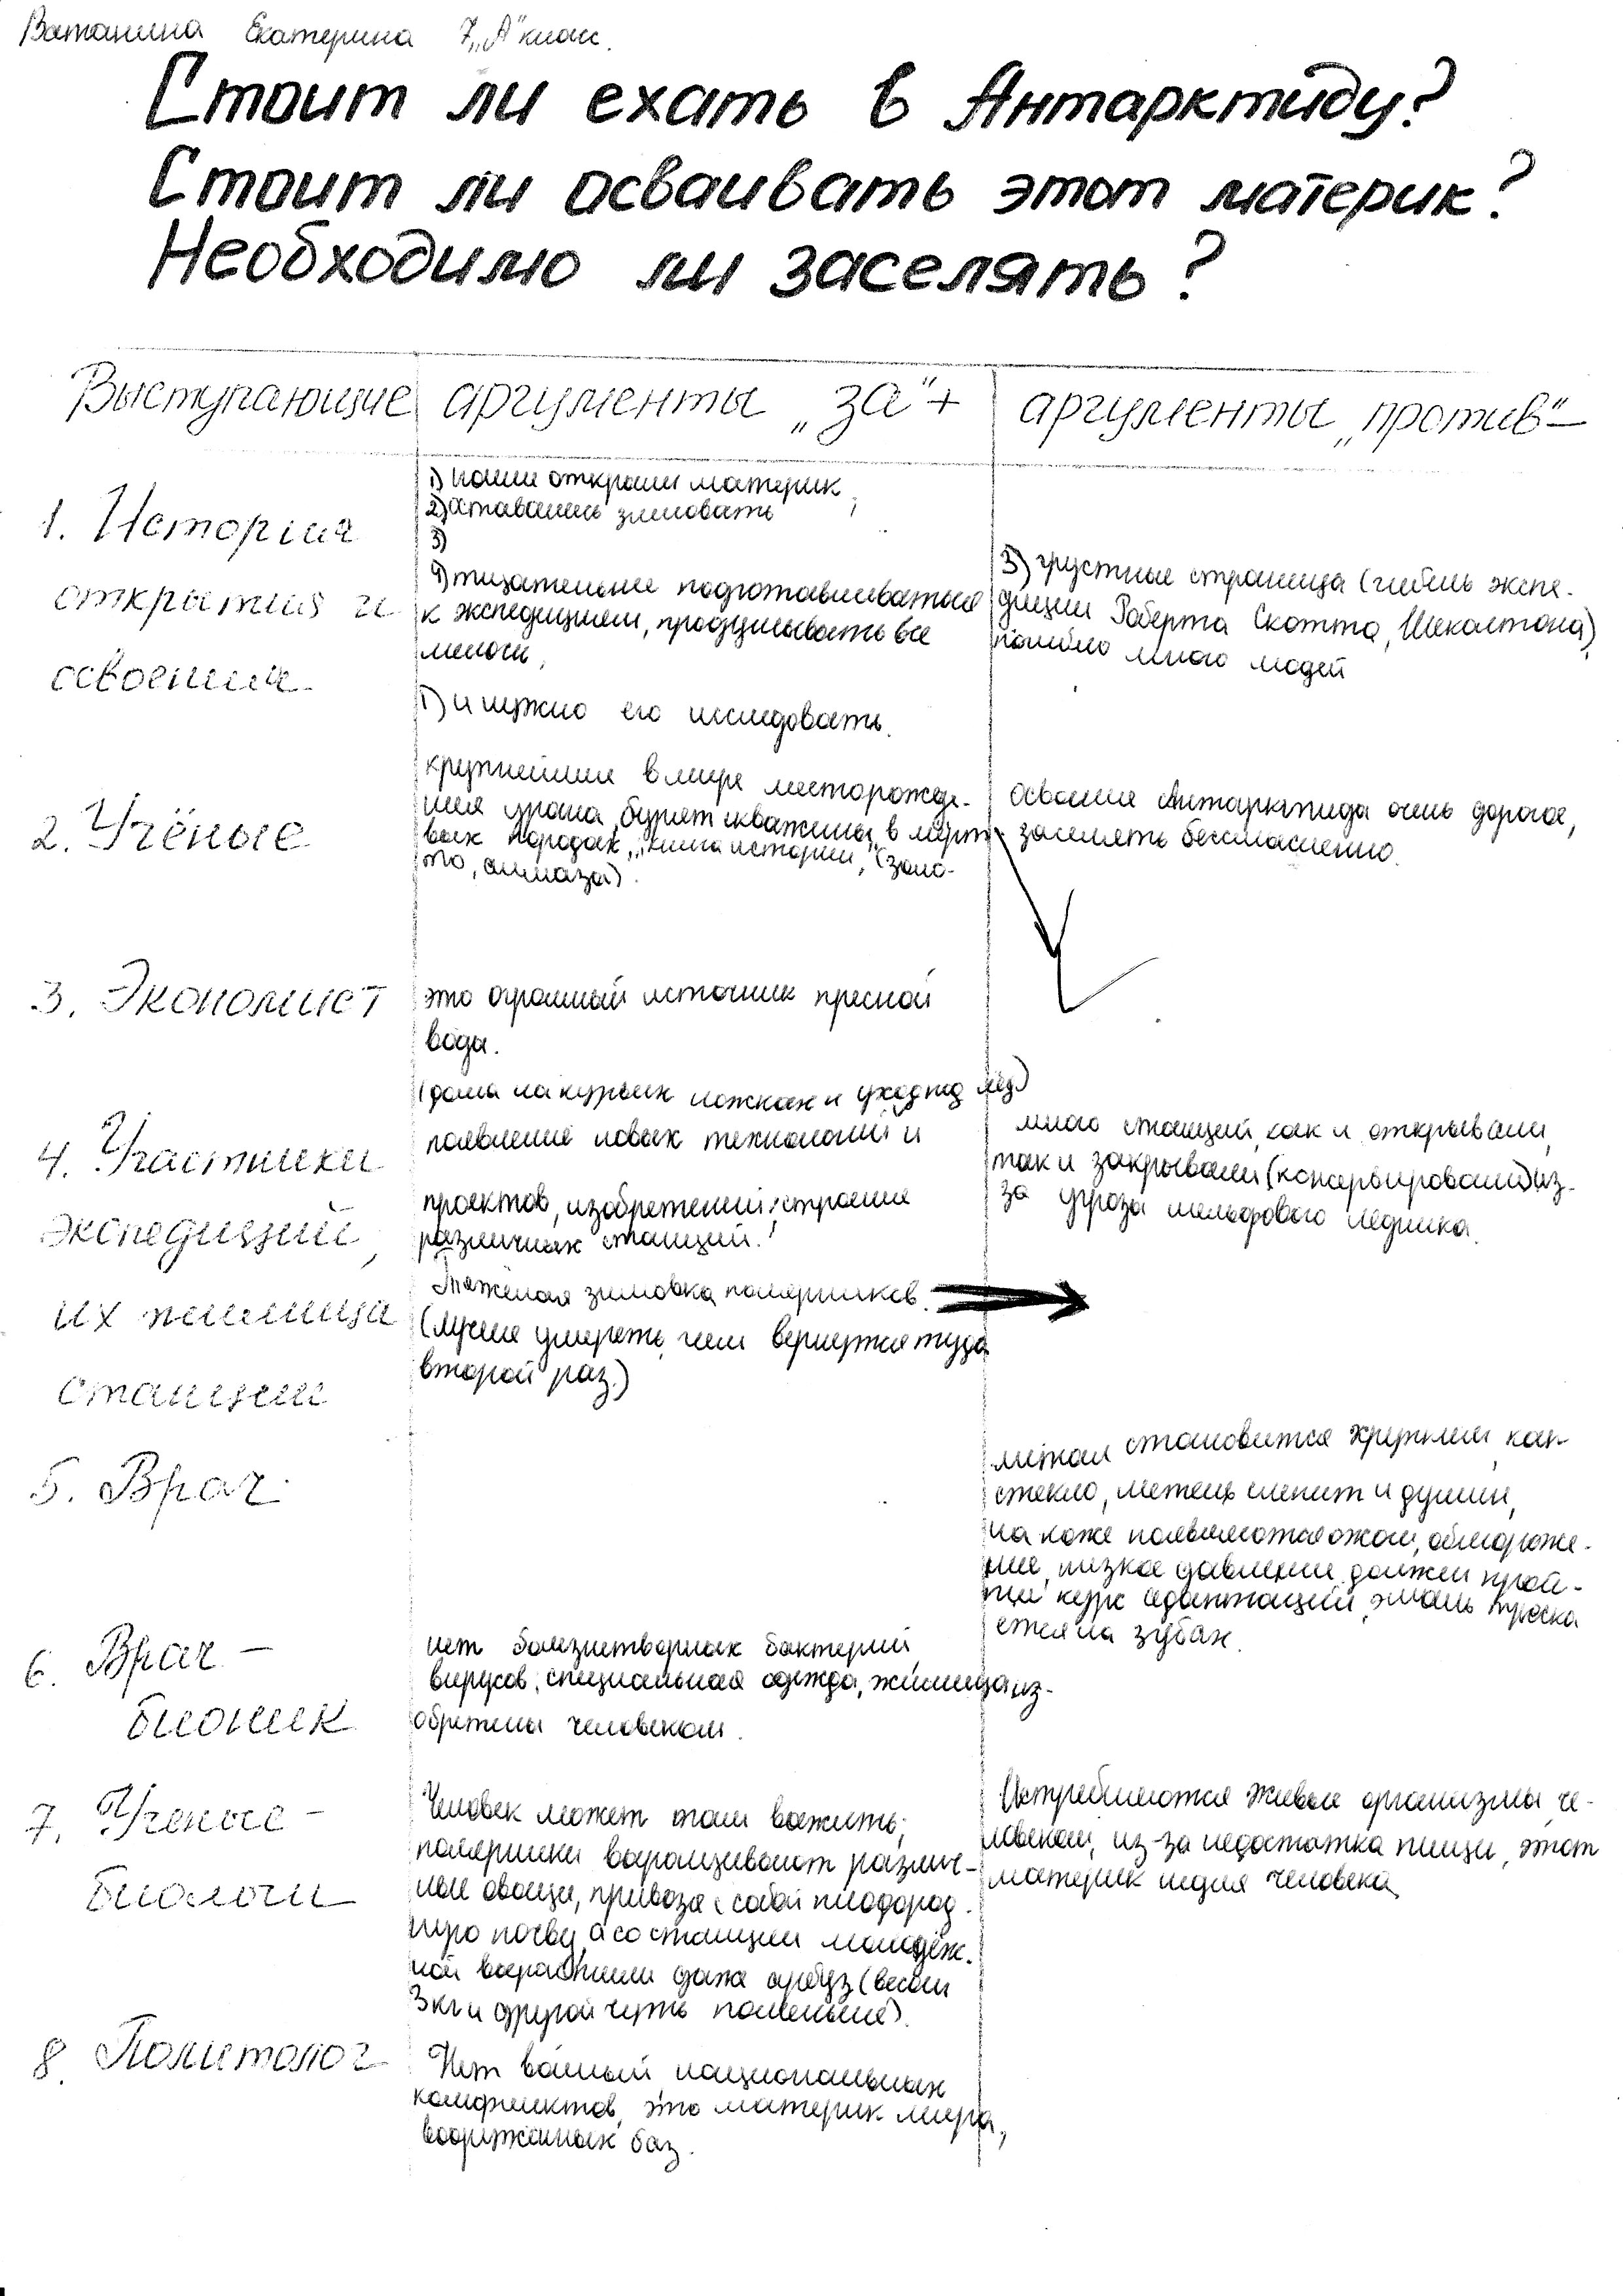 Ватанина Екатерина 7 „А" класс.
Стоит ли ехать в Антарктиду?
Стоит ли осваивать этот материк?
Необходимо ли заселять?
Выступающие
аргументы „за" +
аргументы „против" –
1. История
открытия и
освоения
1) наши открыли материк,
2) Оставались зимовать
3)
4) тщательнее подготавливаться
к экспедициям, продумывать все
мелочи,
1) и нужно его исследовать.
3) грустные страница (гибель экспе-
диции Роберта Скотта, Шеклтона),
погибло много людей
2. Учёные
крупнейшие в мире месторожде-
ния урана, бурят скважины, в мёрт-
вых породах, „книга истории", (золо-
то, алмазы).
освоение Антарктида очень дорогое,
заселять бессмысленно.
3. Экономист
это огромный источник пресной
воды.
4. Участники
экспедиций,
их жилища
станции
(дома на курьих ножках и уход под лёд)
появление новых технологий и
проектов, изобретений; строения
различных станций.
Тяжёлая зимовка полярников.
(лучше умереть, чем вернутся туда
второй раз.)
много станций, как и открывали,
так и закрывали (консервировали) из-
за угрозы шельфового ледника.
5. Врач
металл становится хрупким, как
стекло, метель слепит и душит,
на коже появляются ожоги, обмороже-
ние, низкое давление, должен прой-
ти курс адаптации, эмаль треска
ется на зубах.
6. Врач –
бионик
нет болезнетворных бактерий,
вирусов, специальная одежда, жилища из-
обретены человеком.
7. Ученые –
биологи
Человек может там выжить;
полярники выращивают различ-
ные овощи, привозя с собой плодород-
ную почву, а со станции молодёж-
ной вырастили даже арбуз (весом
3 кг и другой чуть поменьше).
Истребляются живые организмы че-
ловеком, из-за недостатка пищи, этот
материк не для человека
8. Политолог
Нет войный национальных
конфликтов, это материк мира,
вооружённых баз.